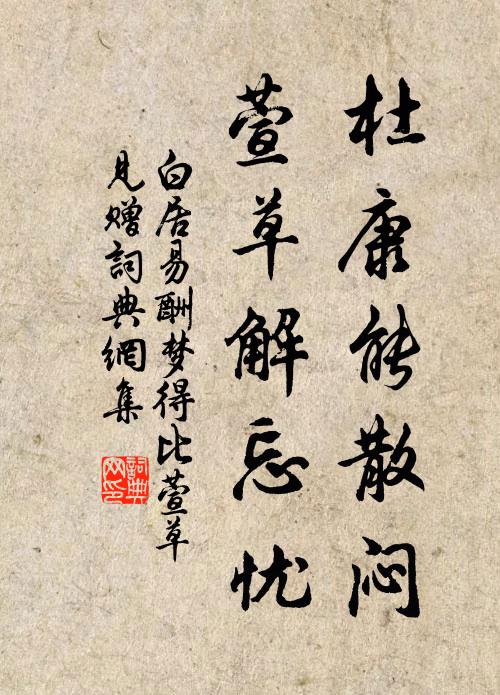 杜康能散闷
萱草解忘忧
白居易酬梦得比萱草
见赠词典網集
詞典
网印